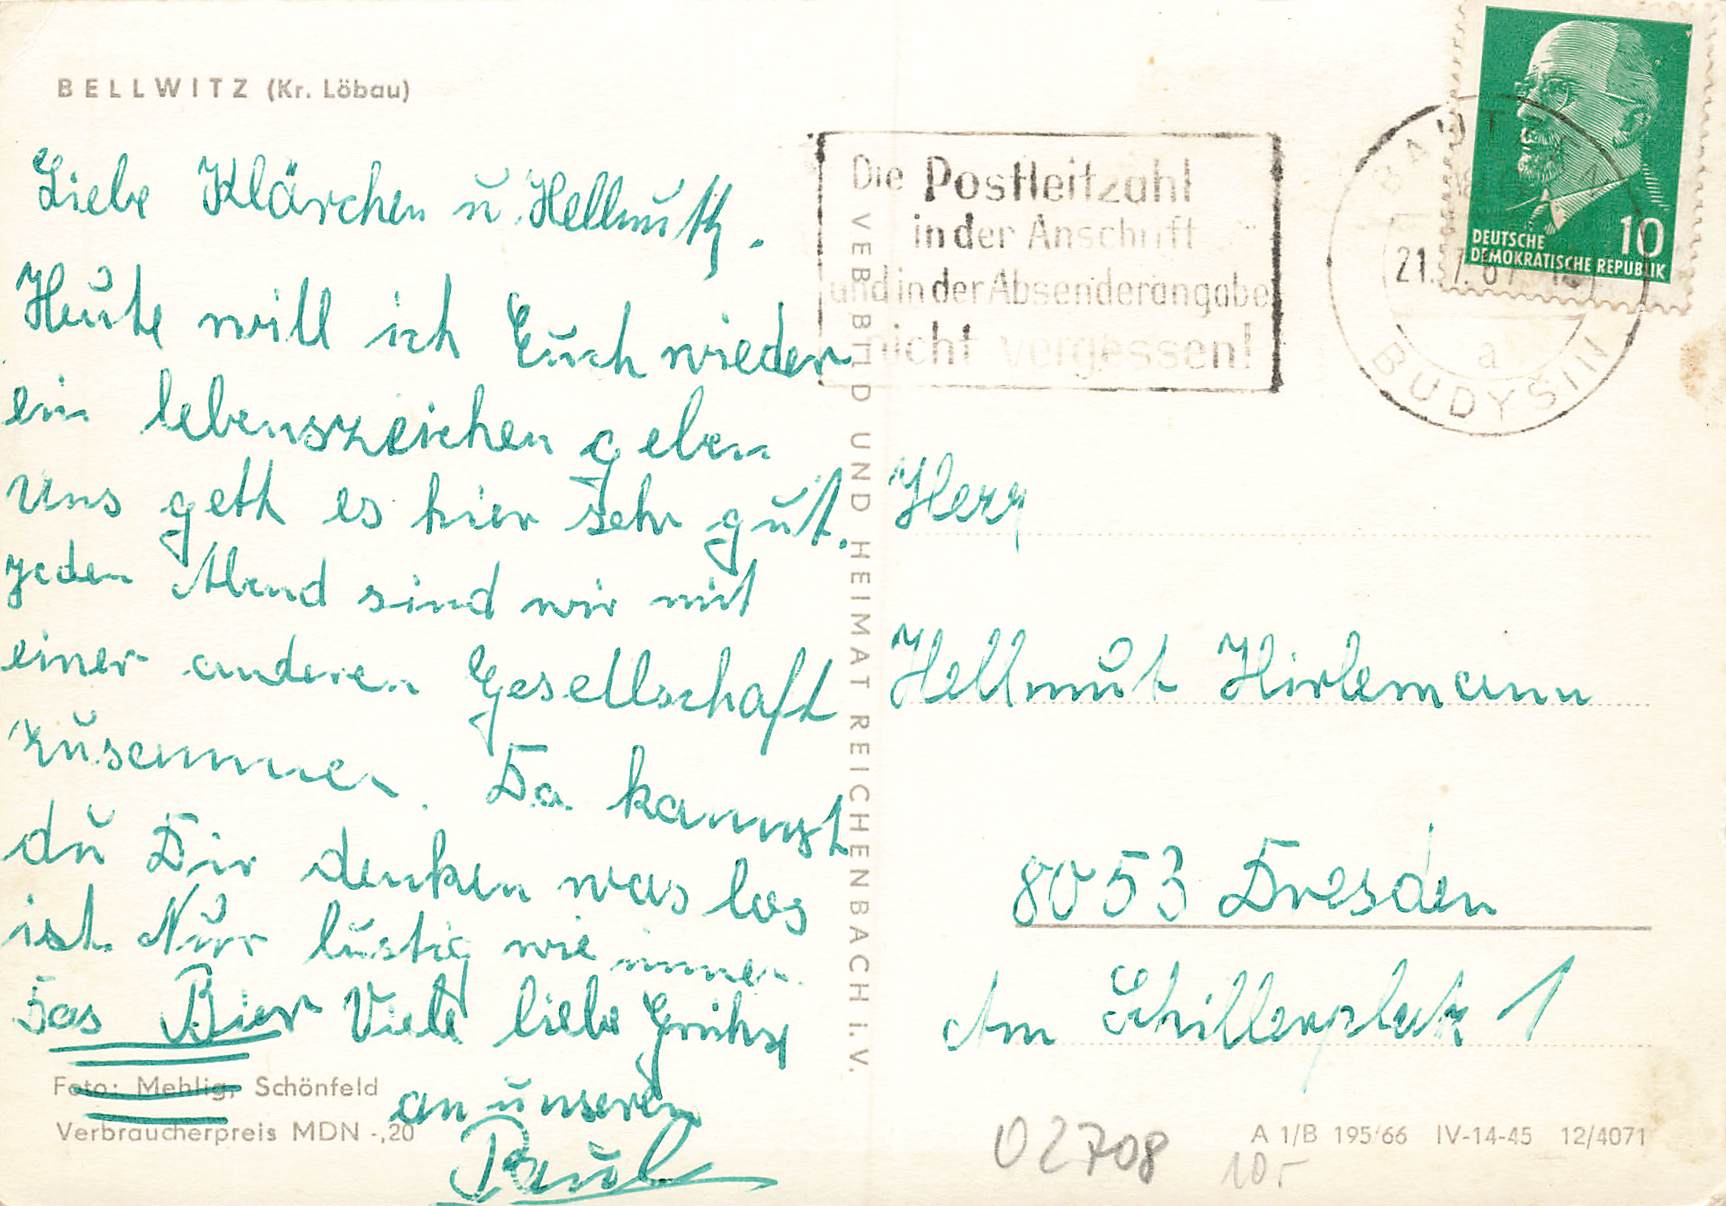 BELLWITZ (Kr. Löbau)
Liebe Klärchen u. Hellmuth.
Heute will ich Euch wieder
ein lebenszeichen geben
Uns geth es hier sehr gut.
jeden Abend sind wir mit
einer anderen Gesellschaft
zusemmen. Da kannst
du Dir denken was los
ist. Nur lustig wie immer.
Das Bier Viele liebe Grühse
an unseren
Paul
Foto: Mehlig, Schönfeld
Verbraucherpreis MDN -,20
VEB BILD UND HEIMAT REICHENBACH i. V.
Die Postleitzahl
in der Anschrift
und in der Absenderangabe
nicht vergessen!
BAUTZEN
21. 7. 67
a
BUDYŠIN
10
DEUTSCHE
DEMOKRATISCHE REPUBLIK
Herr
Hellmut Hirlemann
8053 Dresden
Am Schillerplatz 1
02708
10.-
A 1/B 195/66 IV-14-45 12/4071